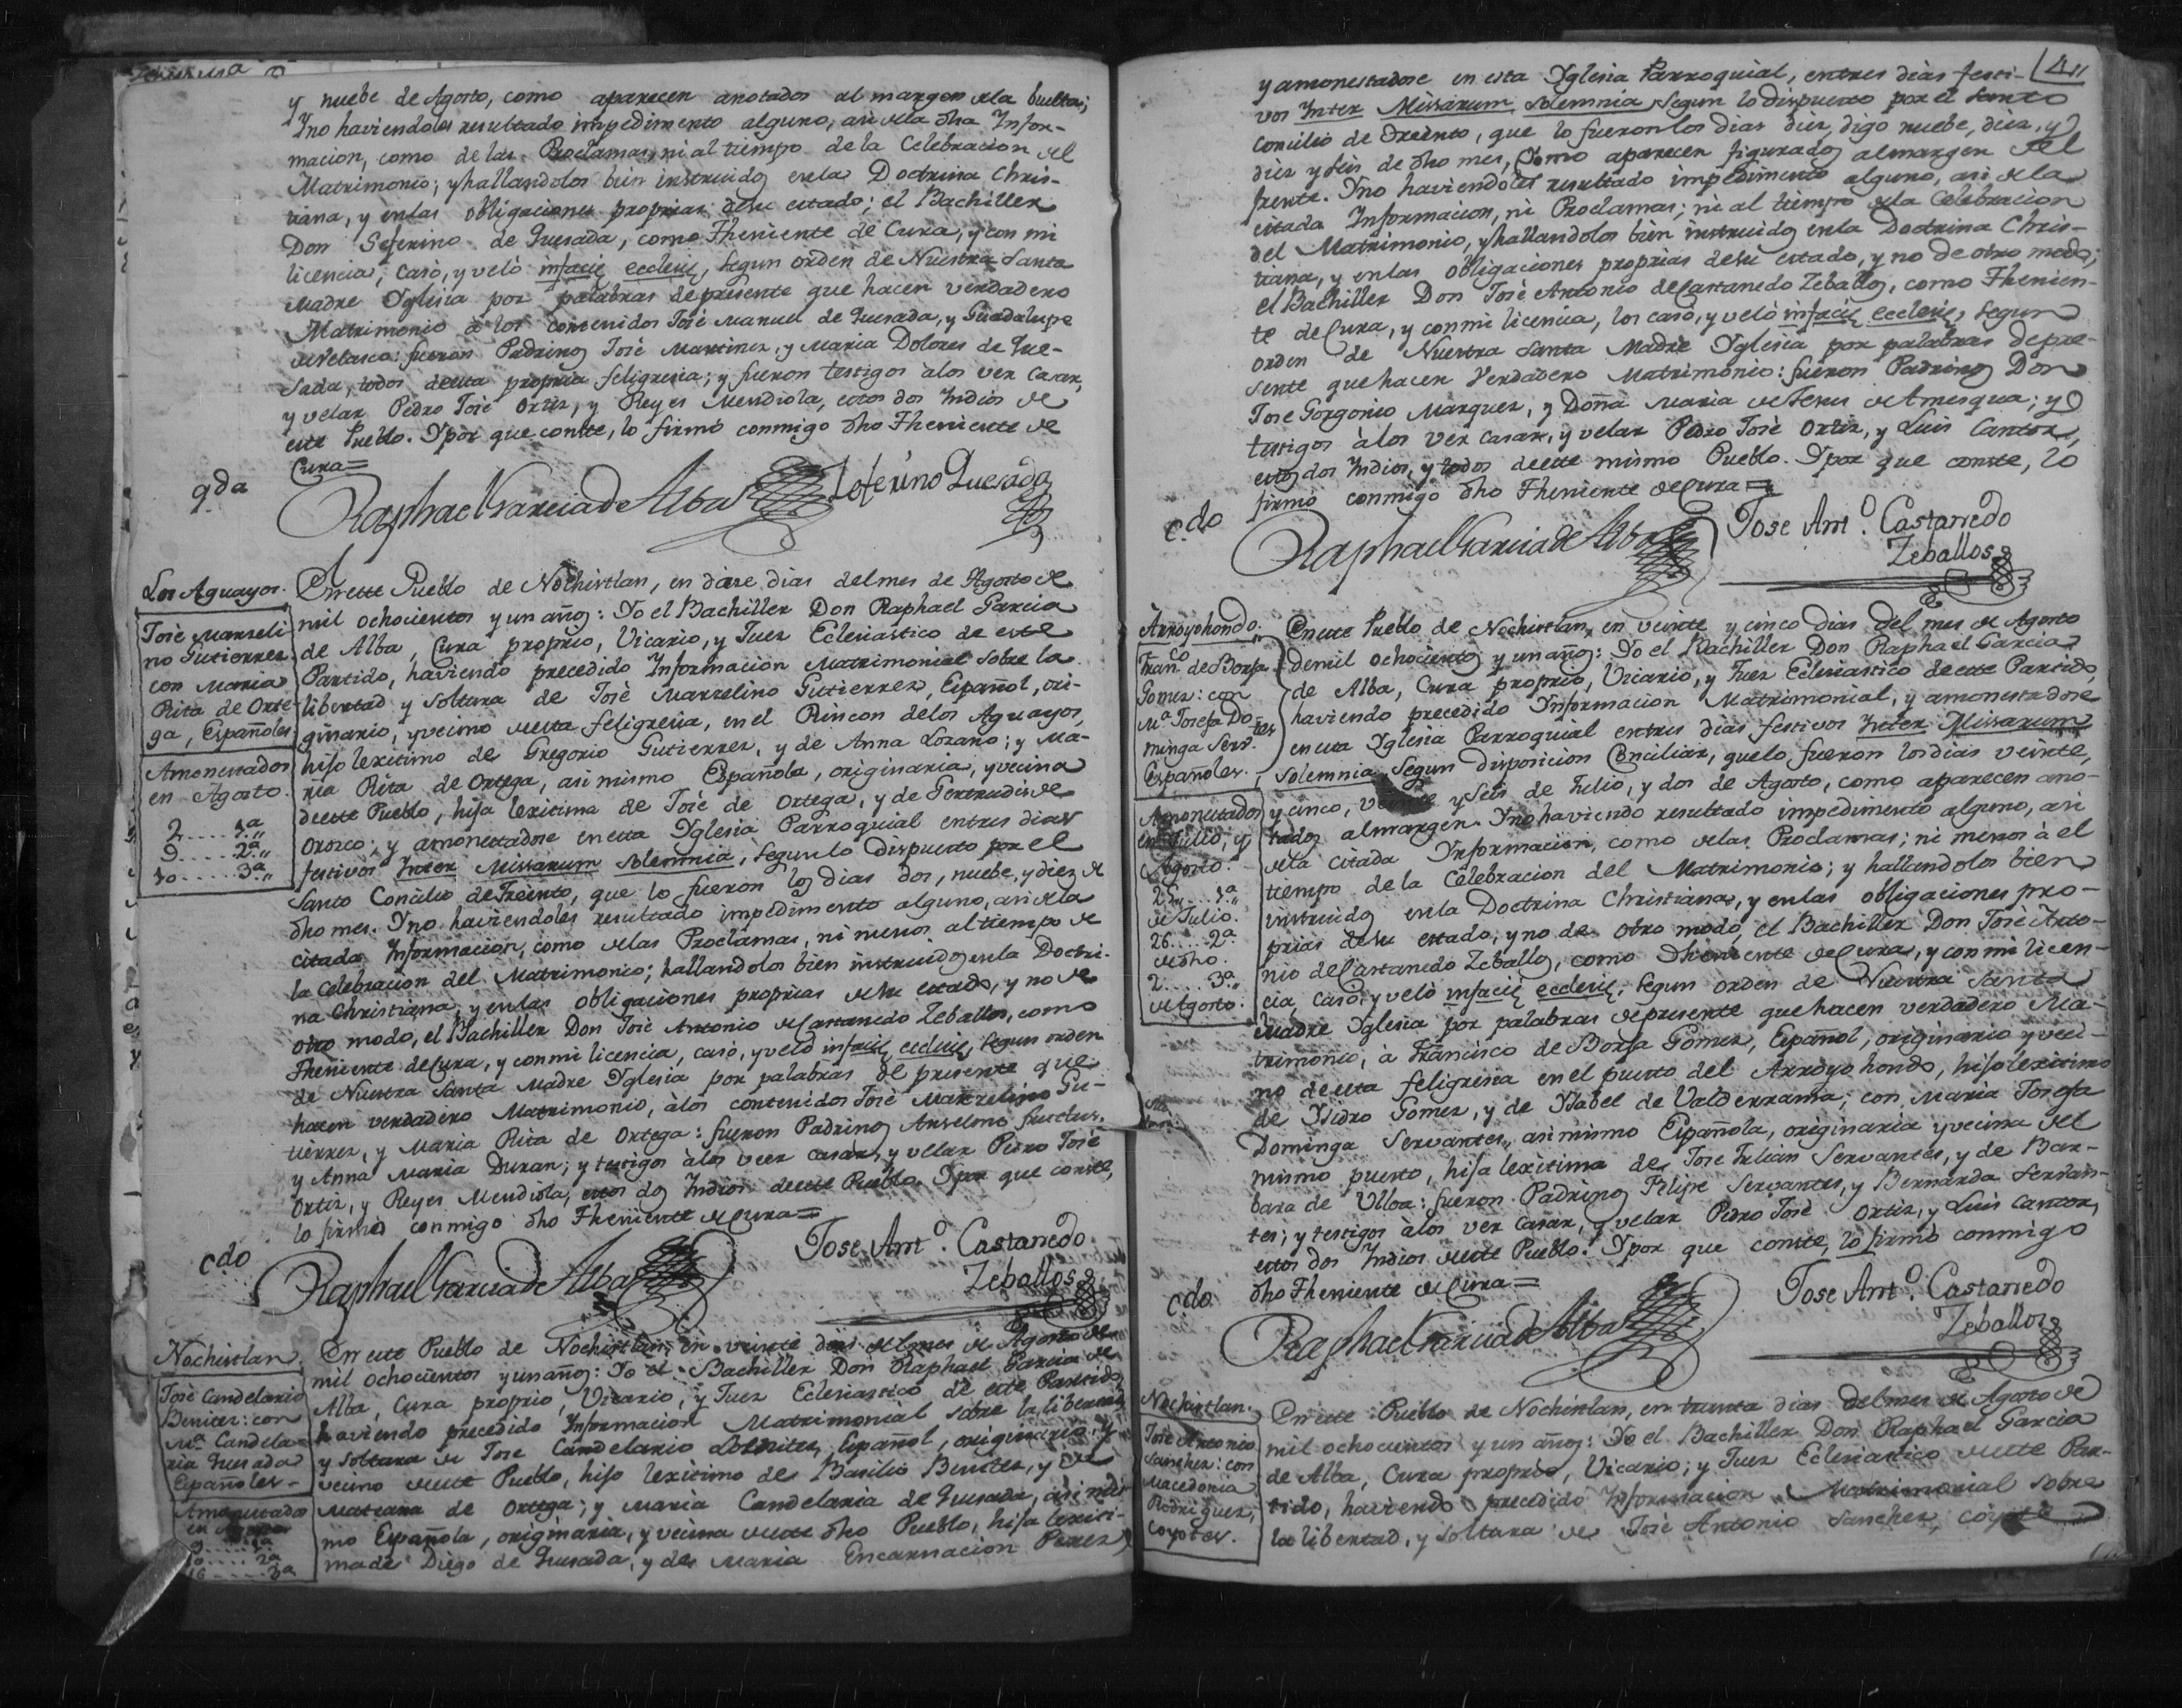 y nuebe de Agosto, como aparecen anotados al margen dela buelta;
Y no haviendoles resultado impedimento alguno, asi dela dha Infor-
macion, como de las Proclamas, ni al tiempo de la Celebracion del
Matrimonio; y hallandolos bien instruidos enla Doctrina Chris-
tiana, y enlas obligaciones proprias desu estado; el Bachiller
Don Seferino de Quesada, como Theniente de Cura, y con mi
licencia, casò, y velò infacię ecclesię, segun orden de Nuestra Santa
Madre Yglesia por palabras depresente que hacen verdadero
Matrimonio à los contenidos Josè Manuel de Quesada, y Guadalupe
deVelasco: fueron Padrinos Josè Martinez, y Maria Dolores de Que-
sada, todos deesta propria feligresia; y fueron testigos àlos ver casar,
y velar Pedro Josè Ortiz, y Reyes Mendiola, estos dos Yndios de
este Pueblo. Y por que conste, lo firmò conmigo dho Theniente de
Cura=
gda
Raphael Garcia de Alba Seferino Quesada
Los Aguayos.
Josè Marseli
no Gutierrez
con Maria
Rita de Orte-
ga, Españoles
Amonestados
en Agosto.
2.....1.ª
9.....2.ª
10.....3.ª
En este Pueblo de Nochistlan, en dose dias delmes de Agosto de
mil ochocientos y un años: Yo el Bachiller Don Raphael Garcia
de Alba, Cura proprio, Vicario, y Juez Eclesiastico de este
Partido, haviendo precedido Informacion Matrimonial sobre la
libertad y soltura de Josè Marzelino Gutierrez, Español, ori-
ginario, y vecino deesta feligresia, en el Rincon delos Aguayos,
hijo lexitimo de Gregorio Gutierrez, y de Anna Lozano; y Ma-
ria Rita de Ortega, asi mismo Española, originaria, y vecina
deeste Pueblo, hija lexitima de Josè de Ortega, y de Gertrudis de
Orozco; y amonestadose en esta Yglesia Parroquial entres dias
festivos Inter Missarum solemnia, segun lo dispuesto por el
Santo Concilio deTrento, que lo fueron los dias dos, nuebe, y diez de
dho mes. Y no haviendoles resultado impedimento alguno, asi dela
citada Informacion, como delas Proclamas, ni menos al tiempo de
la Celebracion del Matrimonio; hallandolos bien instruidos enla Doctri-
na Christiana, y enlas obligaciones proprias desu estado, y no de
otro modo, el Bachiller Don Josè Antonio deCastanedo Zeballos, como
Theniente deCura, y conmi licencia, casò, y velò infacię ecclesię, segun orden
de Nuestra Santa Madre Yglesia por palabras de presente que
hacen verdadero Matrimonio, àlos contenidos Josè Marzelino Gu-
tierrez, y Maria Rita de Ortega: fueron Padrinos Anselmo Fructus,
y Anna Maria Duran; y testigos àlos veer casar, y velar Pedro Josè
Ortiz, y Reyes Mendiola, estos dos Yndios deeste Pueblo. Y por que conste,
lo firmò conmigo dho Theniente deCura=
cdo
Raphael Garcia de Alba Jose Antº. Castanedo
Zeballos
Nochistlan.
Josè Candelario
Benites: con
Mª. Candela-
ria Quesada
Españoles-
Amonestados
en Agosto
9.....1ª
10.....2ª
16.....3ª
En este Pueblo de Nochistlan, en veinte dias delmes de Agosto de
mil ochocientos y un años: Yo el Bachiller Don Raphael Garcia de
Alba, Cura proprio, Vicario, y Juez Eclesiastico de este Partido,
haviendo precedido Informacion Matrimonial sobre la libertad
y soltura de Jose Candelario Benites, Español, originario, y
vecino deeste Pueblo, hijo lexitimo de Basilio Benites, y de
Matiana de Ortega; y Maria Candelaria de Quesada, asi mis-
mo Española, originaria, y vecina deeste dho Pueblo, hija lexiti-
ma de Diego de Quesada, y de Maria Encarnacion Perez
4
y amonestadose en esta Yglesia Parroquial, entres dias festi-
vos Inter Missarum solemnia, segun lo dispuesto por el Santo
Concilio de Trento, que lo fueron los dias diez, digo nuebe, diez, y
diez y seis de dho mes, como aparecen figurados almargen del
frente. Y no haviendoles resultado impedimento alguno, asi dela
citada Informacion, ni Proclamas; ni al tiempo dela Celebracion
del Matrimonio, y hallandolos bien instruidos enla Doctrina Chris-
tiana, y enlas obligaciones proprias desu estado, y no de otro modo;
el Bachiller Don Josè Antonio deCastanedo Zeballos, como Thenien-
te deCura, y conmi licencia, los casò, y velò infacię ecclesię, segun
orden de Nuestra Santa Madre Yglesia por palabras depre-
sente que hacen Verdadero Matrimonio: fueron Padrinos Don
Jose Gorgonio Marquez, y Doña Maria deJesus deAmesqua; y
testigos àlos ver casar, y velar Pedro Josè Ortiz, y Luis Cantor,
estos dos Yndios, y todos deeste mismo Pueblo. Y por que conste, lo
firmò conmigo dho Theniente deCura=
cdo
Raphael Garcia de Alba Jose Antº. Castanedo
Zeballos
Arroyohondo.
Franco de Borja
Gomez: con
Mª Josefa Do-
minga Servtes
Españoles.
Amonestados
en Julio, y
Agosto.
25.....1ª
de Julio.
26.....2ª
de dho.
2.....3ª
deAgosto.
En este Pueblo de Nochistlan, en veinte y cinco dias del mes de Agosto
demil ochocientos y un años: Yo el Bachiller Don Raphael Garcia
de Alba, Cura proprio, Vicario, y Juez Eclesiastico deeste Partido,
haviendo precedido Informacion Matrimonial, y amonestadose
en esta Yglesia Parroquial entres dias festivos Inter Missarum
solemnia, segun disposicion Conciliar, que lo fueron los dias veinte,
y cinco, veinte y seis de Julio, y dos de Agosto, como aparecen ano-
tados almargen. Y no haviendo resultado impedimento alguno, asi
dela citada Informacion, como delas Proclamas; ni menos à el
tiempo de la Celebracion del Matrimonio; y hallandolos bien
instruidos enla Doctrina Christiana, y enlas obligaciones pro-
prias desu estado, y no de otro modo, el Bachiller Don Josè Anto-
nio deCastanedo Zeballos, como Theniente deCura, y con mi licen-
cia, casò, y velò infacię ecclesię, segun orden de Nuestra Santa
Madre Yglesia por palabras depresente que hacen verdadero Ma-
trimonio, à Francisco de Borja Gomez, Español, originario y veci-
no deesta feligresia en el puesto del Arroyo hondo, hijo lexitimo
de Ysidro Gomez, y de Ysabel de Valderrama; con Maria Josefa
Dominga Servantes, asimismo Española, originaria y vecina del
mismo puesto, hija lexitima de Jose Julian Servantes, y de Bar-
bara de Ulloa: fueron Padrinos Felipe Servantes, y Bernarda Servan-
tes; y testigos àlos ver casar, y velar Pedro Josè Ortiz, y Luis Cantor,
estos dos Yndios deeste Pueblo. Y por que conste, lo firmò conmigo
dho Theniente deCura=
cdo
Raphael Garcia de Alba Jose Antº. Castanedo
Zeballos
Nochistlan.
Josè Antonio
Sanchez: con
Macedonia
Rodriguez,
Coyotes.
En este Pueblo de Nochistlan, en trenta dias delmes de Agosto de
mil ochocientos y un años: Yo el Bachiller Don Raphael Garcia
de Alba, Cura proprio, Vicario, y Juez Eclesiastico deeste Par-
tido, haviendo precedido Informacion Matrimonial sobre
la libertad, y soltura de Josè Antonio Sanchez, coyote